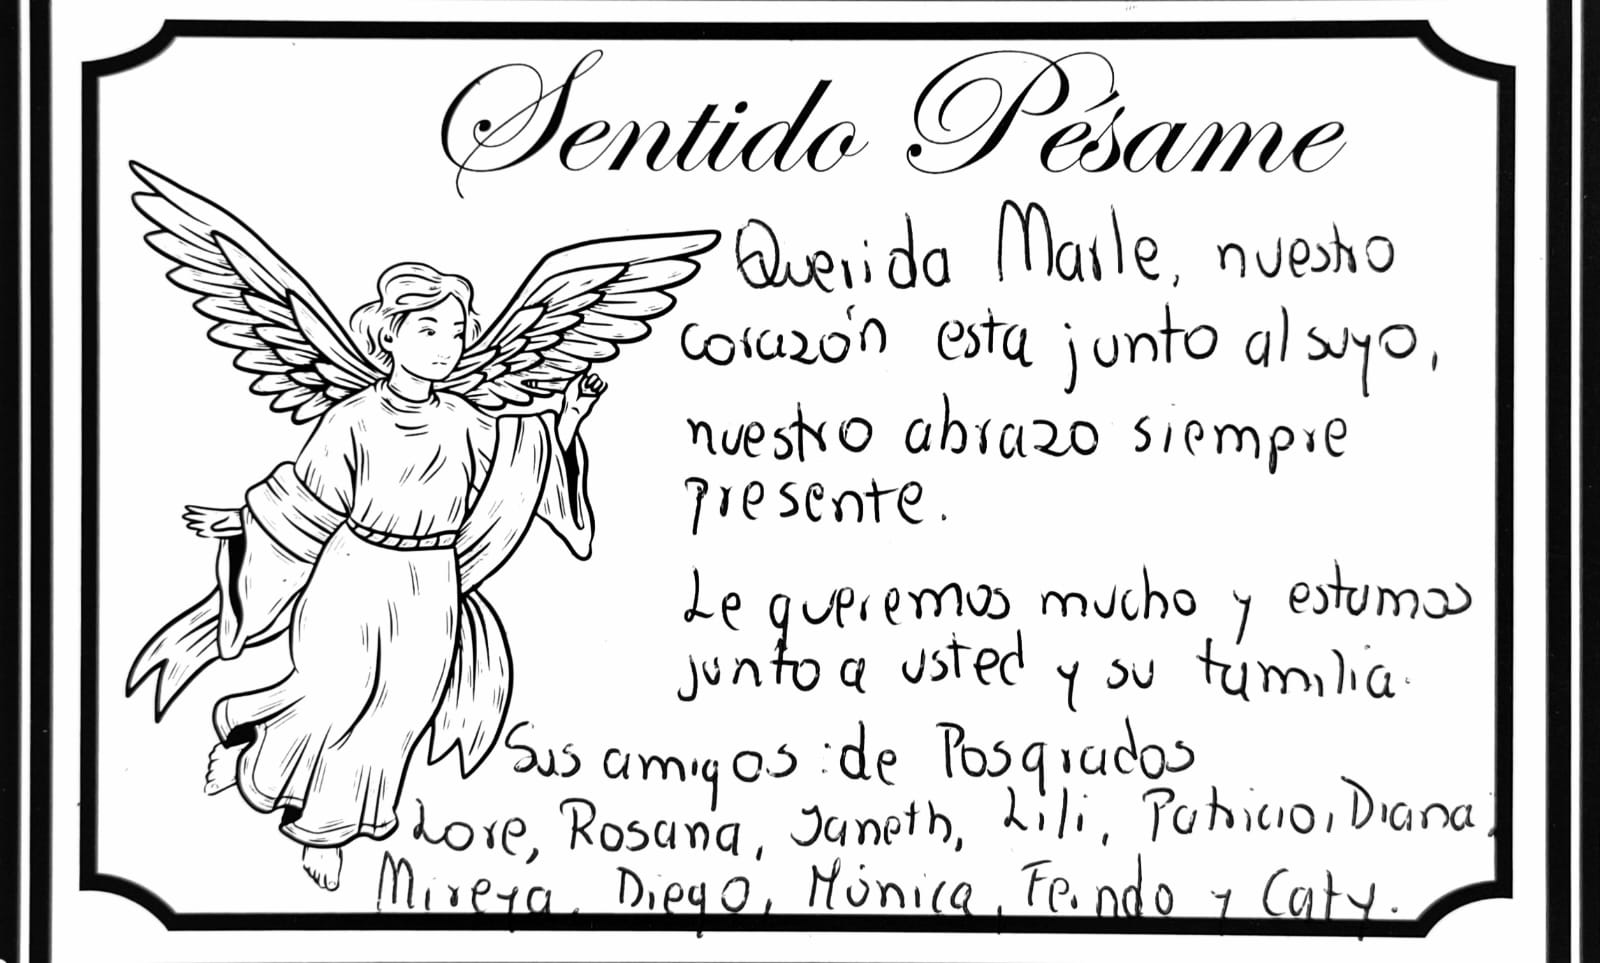 Sentido Pésame
Querida Marle, nuestro
corazón esta junto al suyo,
nuestro abrazo siempre
presente.
Le queremos mucho y estamos
junto a usted y su familia.
Sus amigos: de Posgrados
Lore, Rosana, Janeth, Lili, Patricio, Diana,
Mireya, Diego, Mónica, y Caty.